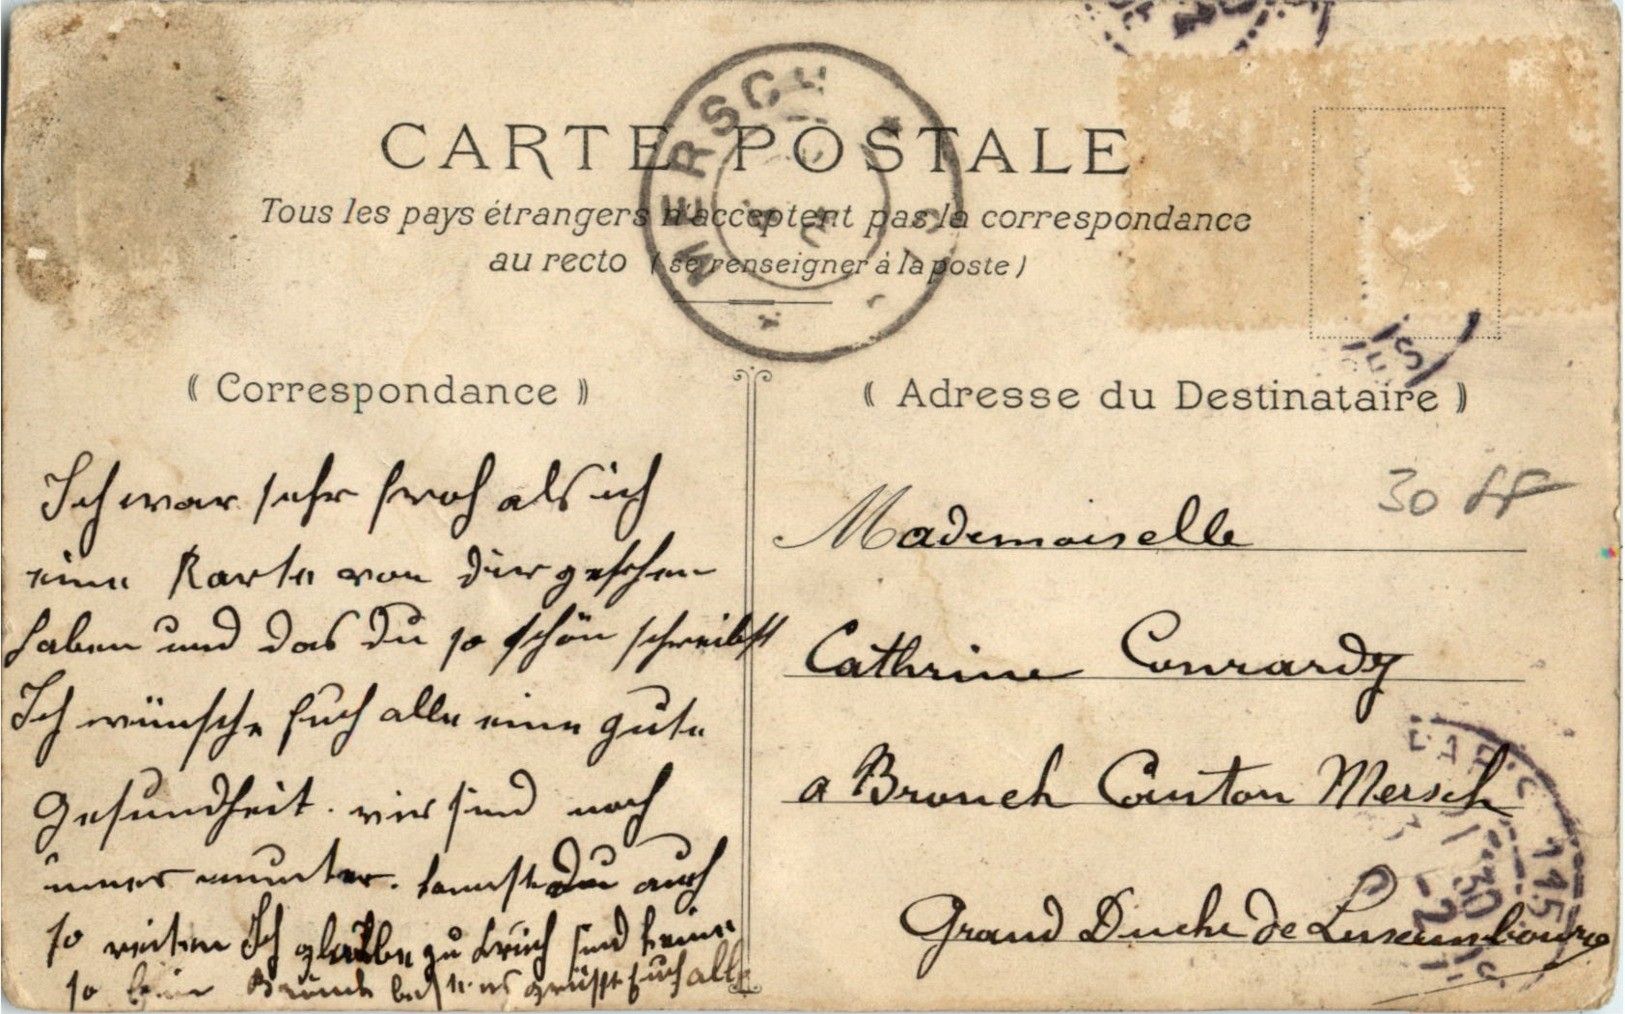 CARTE POSTALE
Tous les pays étrangers n'acceptent pas la correspondance
au recto (se renseigner à la poste)
MERSCH
Correspondance
Adresse du Destinataire
30 ff
Ich war sehr froh als ich
eine Karte von dir gesehen
haben und das du so schön schreibst
Ich wünsche Euch alle eine gute
Gesundheit. wir sind noch
imer munter. kannst Du auch
so reiten Ich glaube zu Bruch sind keine
so Bruch grüsst Euch alle
Mademoiselle
Cathrine Conrardy
a Brouch Canton Mersch
Grand Duche de Luxembourg